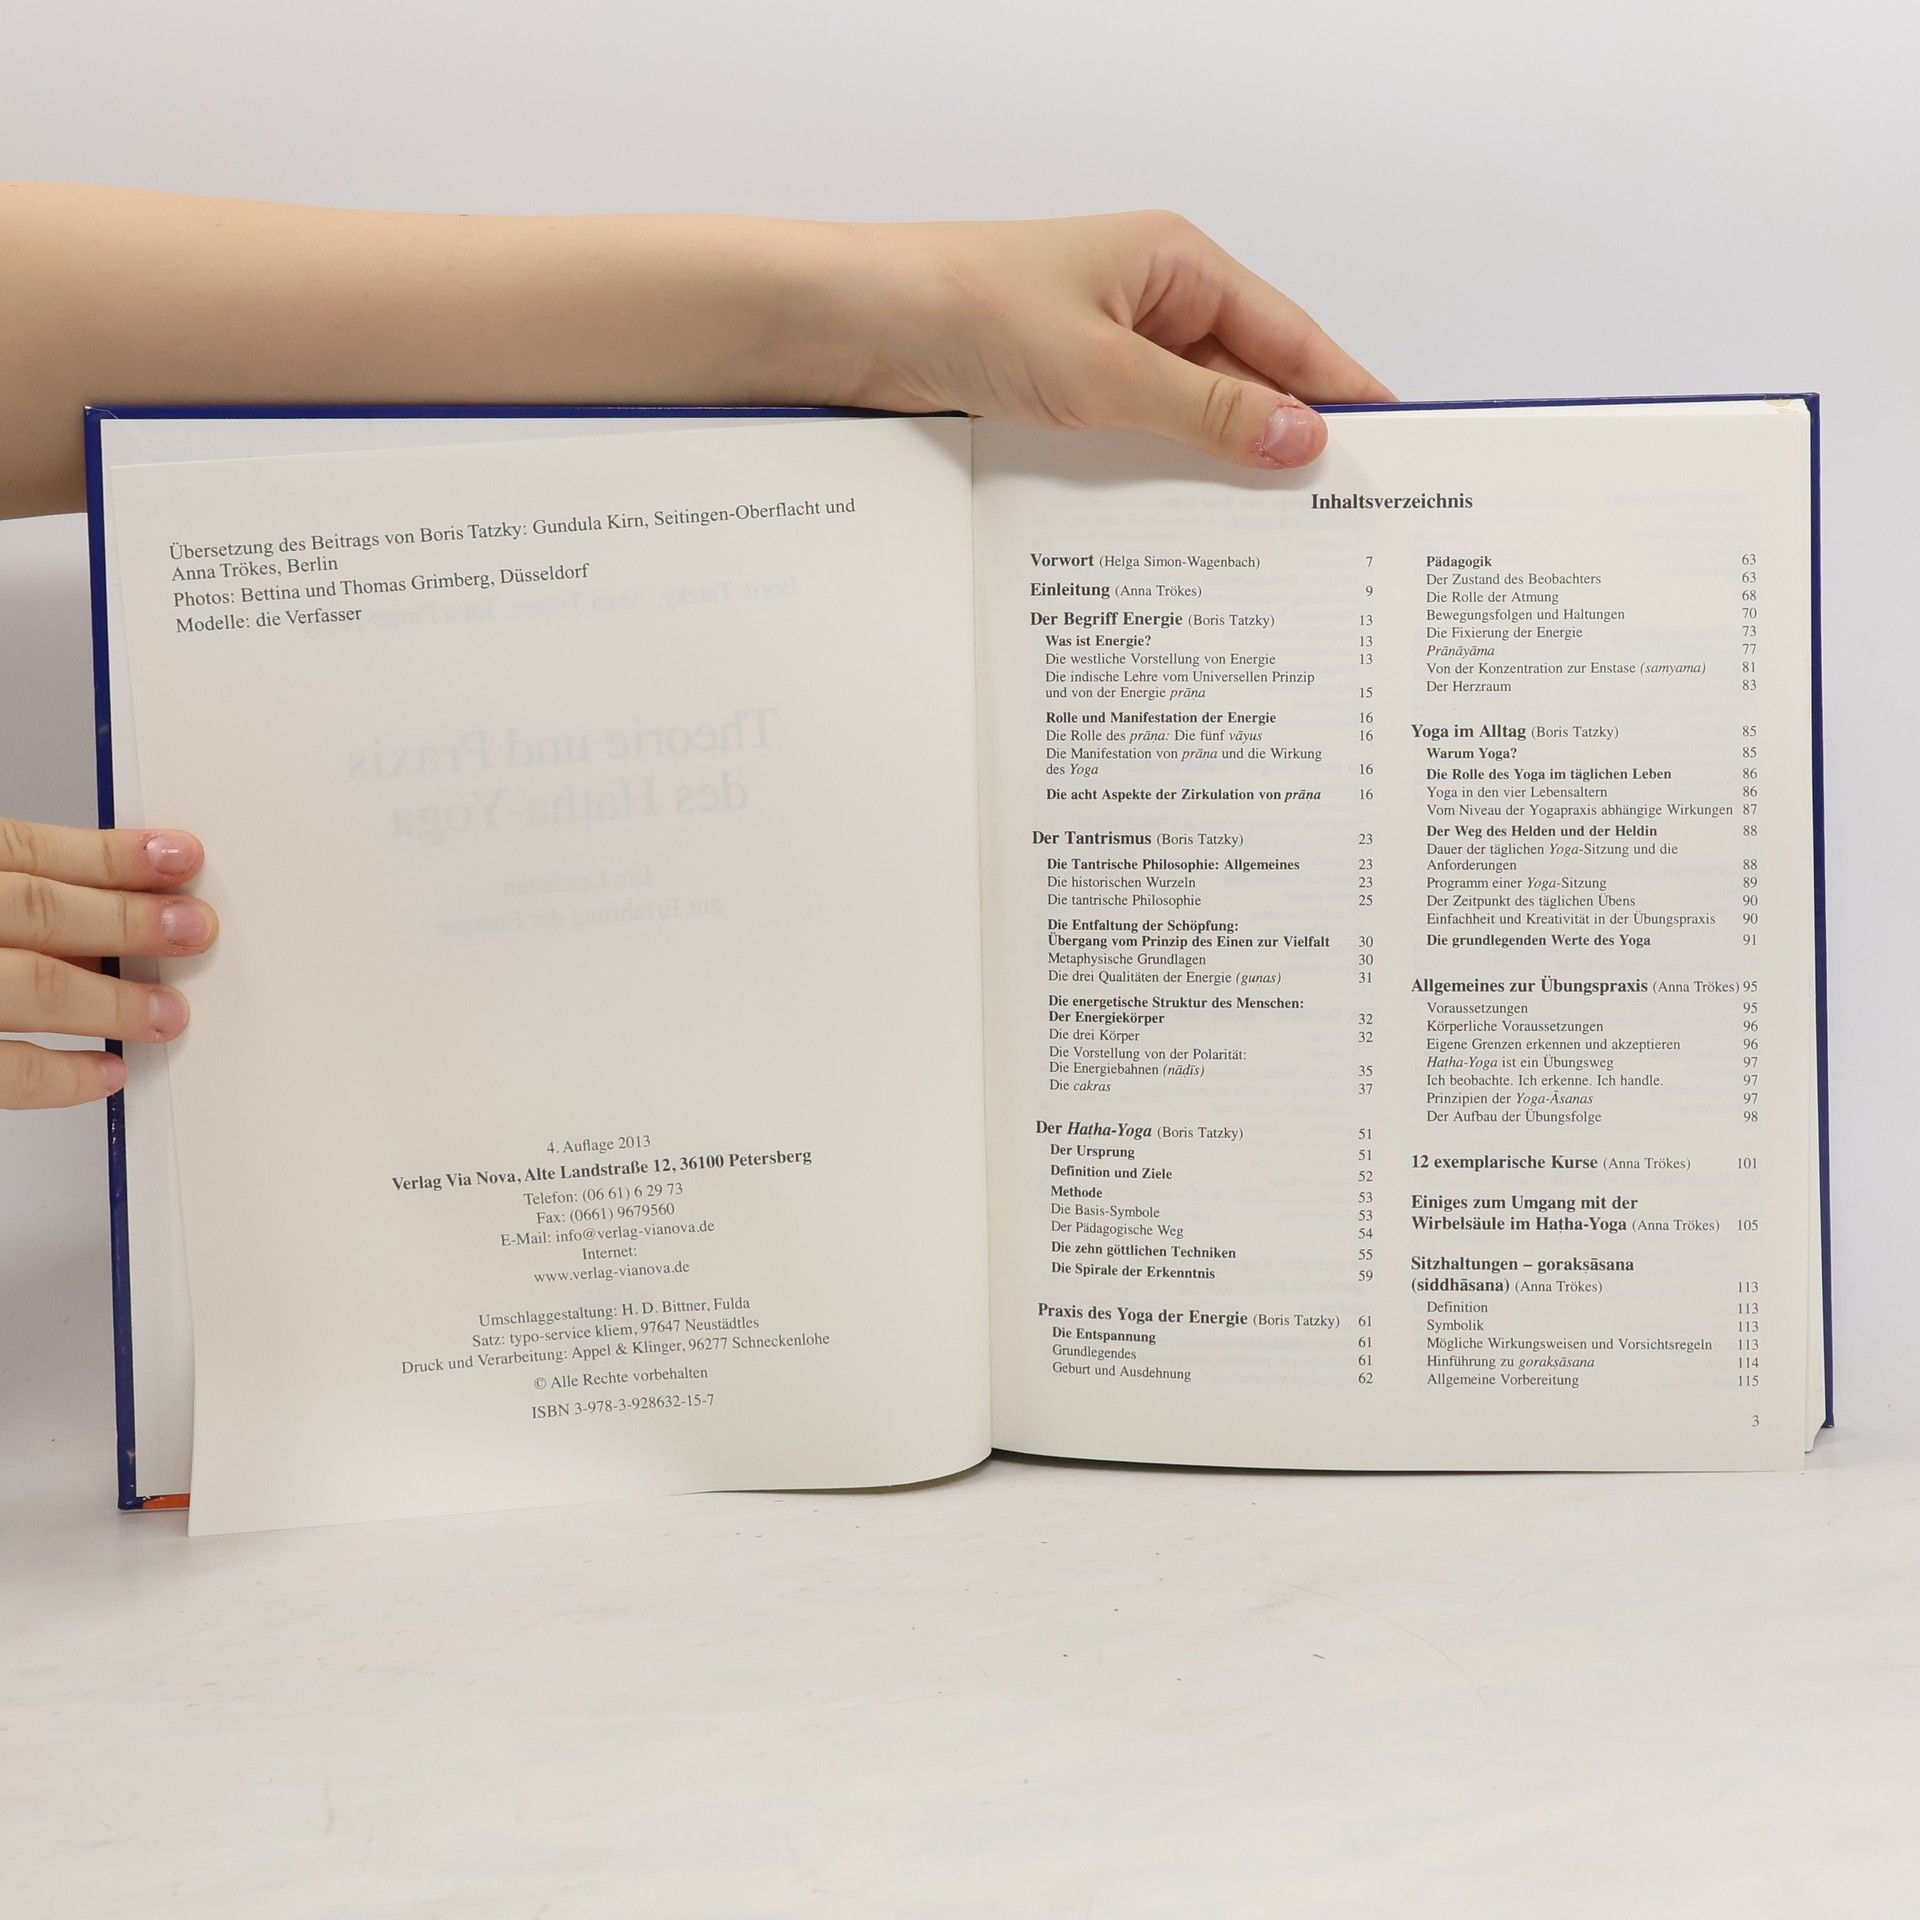 Übersetzung des Beitrags von Boris Tatzky: Gundula Kirn, Seitingen-Oberflacht und
Anna Trökes, Berlin
Photos: Bettina und Thomas Grimberg, Düsseldorf
Modelle: die Verfasser
Theorie und Praxis
des Hatha-Yoga
Ein Leitfaden
zur Erfahrung der Energie
4. Auflage 2013
Verlag Via Nova, Alte Landstraße 12, 36100 Petersberg
Telefon: (06 61) 6 29 73
Fax: (0661) 9679560
E-Mail: info@verlag-vianova.de
Internet:
www.verlag-vianova.de
Umschlaggestaltung: H. D. Bittner, Fulda
Satz: typo-service kliem, 97647 Neustädtles
Druck und Verarbeitung: Appel & Klinger, 96277 Schneckenlohe
© Alle Rechte vorbehalten
ISBN 3-978-3-928632-15-7
Inhaltsverzeichnis
Vorwort (Helga Simon-Wagenbach) 7
Einleitung (Anna Trökes) 9
Der Begriff Energie (Boris Tatzky) 13
Was ist Energie? 13
Die westliche Vorstellung von Energie 13
Die indische Lehre vom Universellen Prinzip
und von der Energie prāna 15
Rolle und Manifestation der Energie 16
Die Rolle des prāṇa: Die fünf vāyus 16
Die Manifestation von prāṇa und die Wirkung
des Yoga 16
Die acht Aspekte der Zirkulation von prāṇa 16
Der Tantrismus (Boris Tatzky) 23
Die Tantrische Philosophie: Allgemeines 23
Die historischen Wurzeln 23
Die tantrische Philosophie 25
Die Entfaltung der Schöpfung:
Übergang vom Prinzip des Einen zur Vielfalt 30
Metaphysische Grundlagen 30
Die drei Qualitäten der Energie (guṇas) 31
Die energetische Struktur des Menschen:
Der Energiekörper 32
Die drei Körper 32
Die Vorstellung von der Polarität:
Die Energiebahnen (nāḍīs) 35
Die cakras 37
Der Haṭha-Yoga (Boris Tatzky) 51
Der Ursprung 51
Definition und Ziele 52
Methode 53
Die Basis-Symbole 53
Der Pädagogische Weg 54
Die zehn göttlichen Techniken 55
Die Spirale der Erkenntnis 59
Praxis des Yoga der Energie (Boris Tatzky) 61
Die Entspannung 61
Grundlegendes 61
Geburt und Ausdehnung 62
Pädagogik 63
Der Zustand des Beobachters 63
Die Rolle der Atmung 68
Bewegungsfolgen und Haltungen 70
Die Fixierung der Energie 73
Prāṇāyāma 77
Von der Konzentration zur Enstase (saṃyama) 81
Der Herzraum 83
Yoga im Alltag (Boris Tatzky) 85
Warum Yoga? 85
Die Rolle des Yoga im täglichen Leben 86
Yoga in den vier Lebensaltern 86
Vom Niveau der Yogapraxis abhängige Wirkungen 87
Der Weg des Helden und der Heldin 88
Dauer der täglichen Yoga-Sitzung und die
Anforderungen 88
Programm einer Yoga-Sitzung 89
Der Zeitpunkt des täglichen Übens 90
Einfachheit und Kreativität in der Übungspraxis 90
Die grundlegenden Werte des Yoga 91
Allgemeines zur Übungspraxis (Anna Trökes) 95
Voraussetzungen 95
Körperliche Voraussetzungen 96
Eigene Grenzen erkennen und akzeptieren 96
Haṭha-Yoga ist ein Übungsweg 97
Ich beobachte. Ich erkenne. Ich handle. 97
Prinzipien der Yoga-Āsanas 97
Der Aufbau der Übungsfolge 98
12 exemplarische Kurse (Anna Trökes) 101
Einiges zum Umgang mit der
Wirbelsäule im Haṭha-Yoga (Anna Trökes) 105
Sitzhaltungen – gorakṣāsana
(siddhāsana) (Anna Trökes) 113
Definition 113
Symbolik 113
Mögliche Wirkungsweisen und Vorsichtsregeln 113
Hinführung zu gorakṣāsana 114
Allgemeine Vorbereitung 115
3